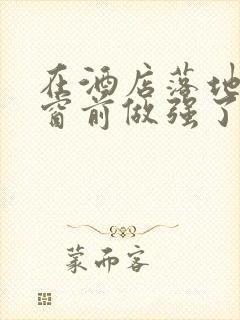 在酒店落地
窗前做强了
蒙而客